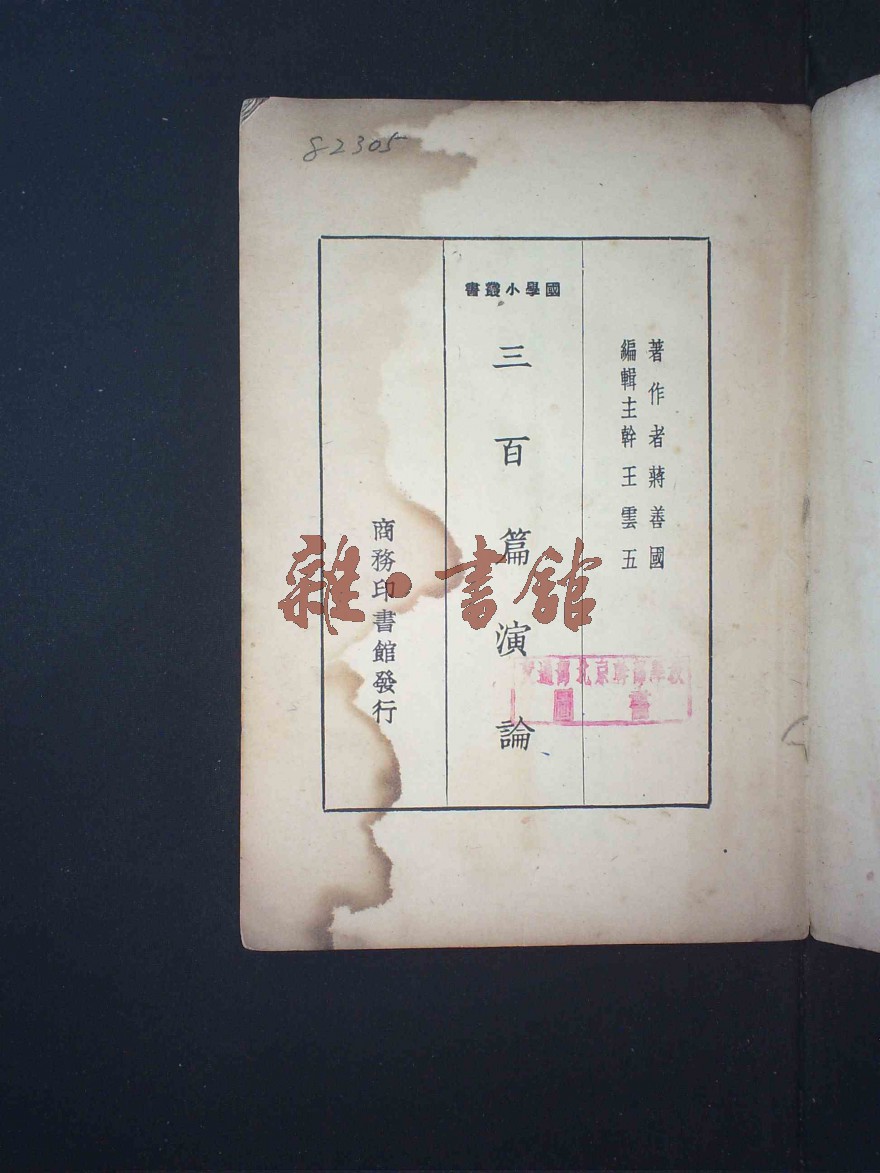 82305
著作者蔣善國
編輯主幹王雲五
國學小叢書
三百篇演論
商務印書館發行
雜·書館
圖書